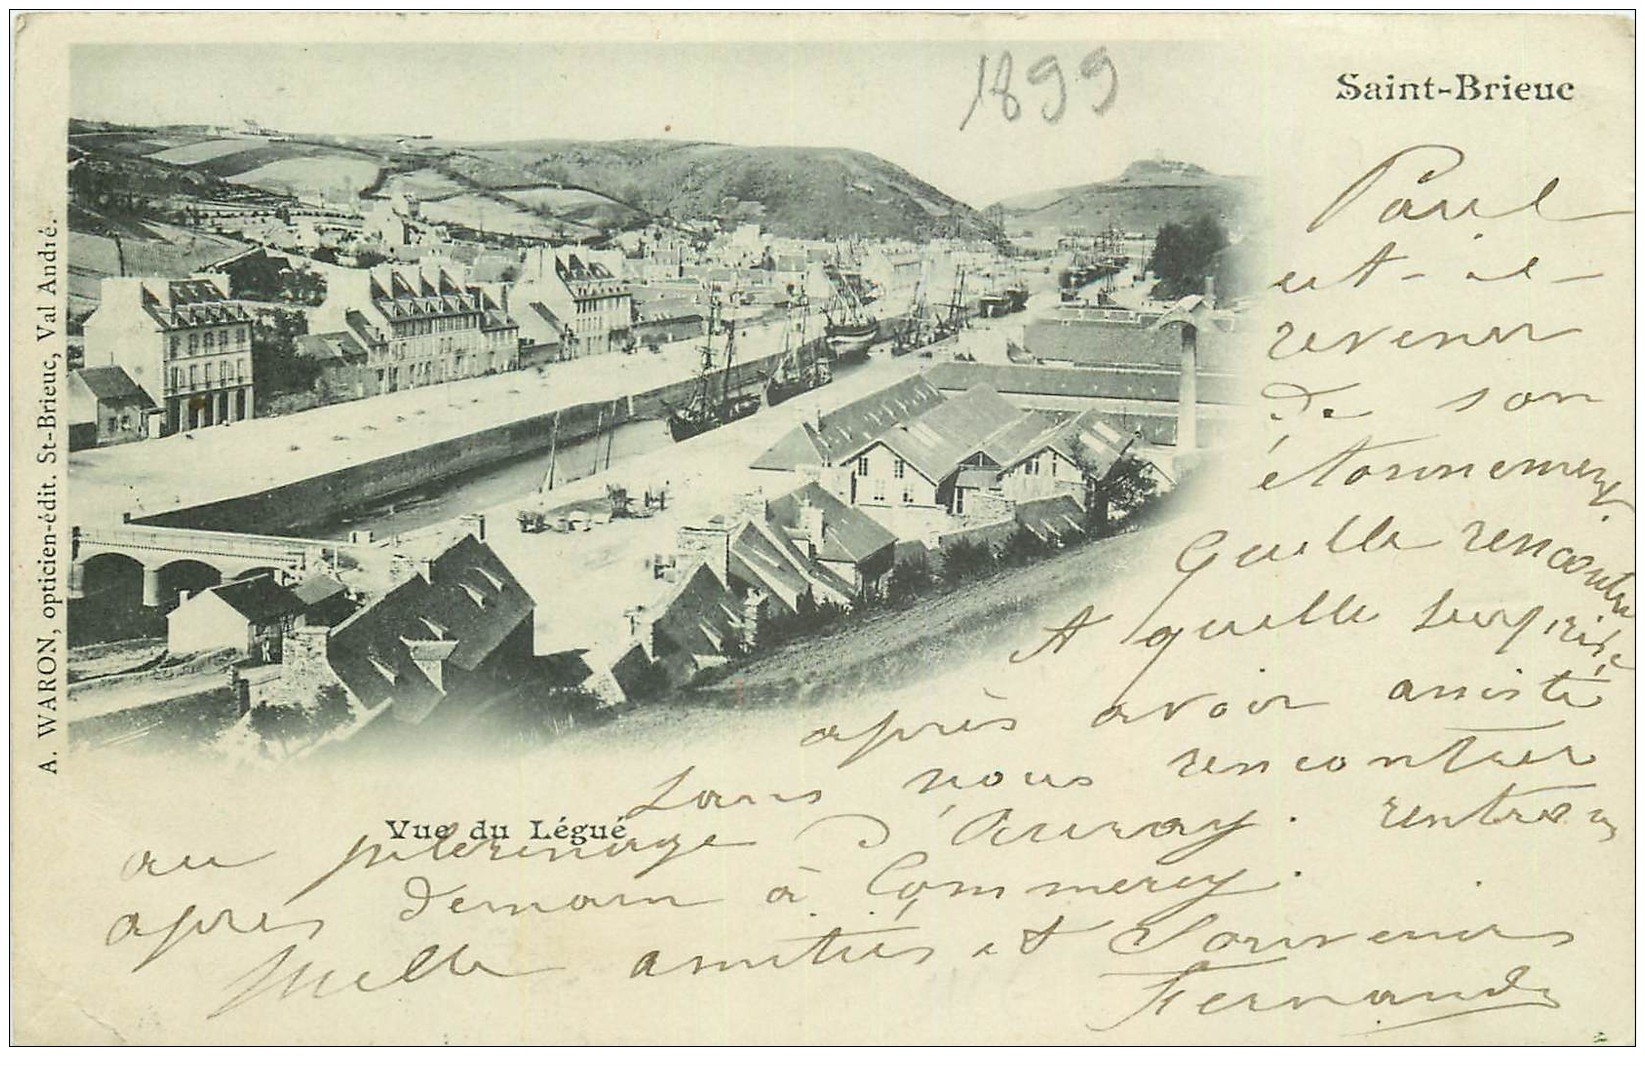 1899
Saint-Brieuc
A. WARON, opticien-édit. St-Brieuc, Val André.
Vue du Légué
Paul
est-il
revenu
de son
étonnement
Quelle rencontre
et quelle surprise
après avoir assisté
sans nous rencontrer
au pèlerinage d'Auray. rentrons
après demain à Commercy.
Mille amitiés et Souvenirs
Fernande